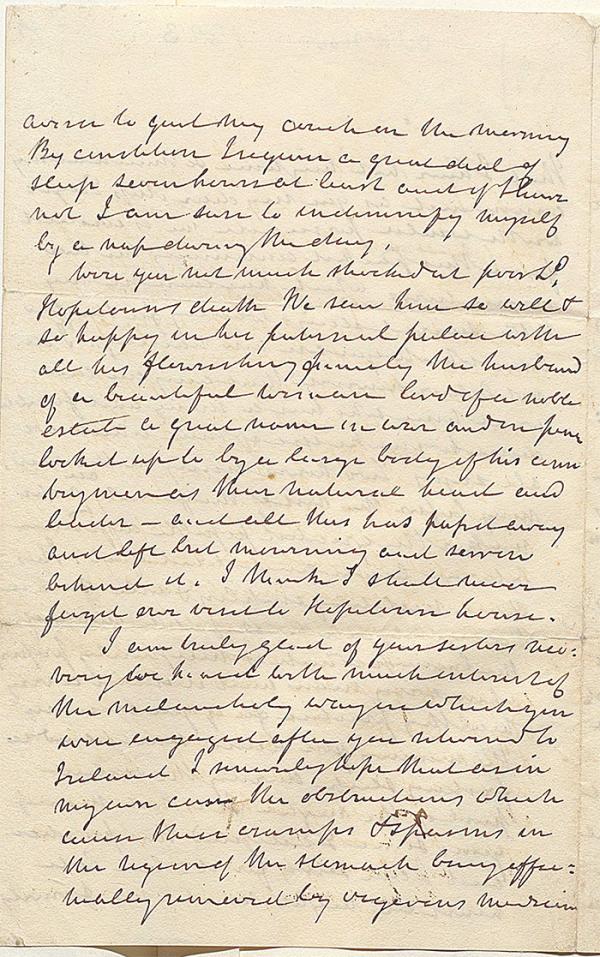 averse to quit my couch in the morning
By constitution I require a great deal of
sleep seven hours at least and if I have
not I am sure to indemnify myself
by a nap during the day.
Were you not much shocked at poor Ld.
Hopetouns death We saw him so well &
so happy in his paternal palace with
all his flourishing family the husband
of a beautiful woman lord of a noble
estate a great name in war and in peace
looked up to by a large body of his coun
trymen as their natural head and
leader – and all this has passd away
and left but mourning and sorrow
behind it. I think I shall never
forget our visit to Hopetoun house.
I am truly glad of your sisters reco=
very we heard with much interest of
the melancholy way in which you
were engaged after you returned to
Ireland I sincerely hope that as in
my own case the obstructions which
cause these cramps & spasms in
the region of the stomach being effec=
tually removed by vigorous medicine